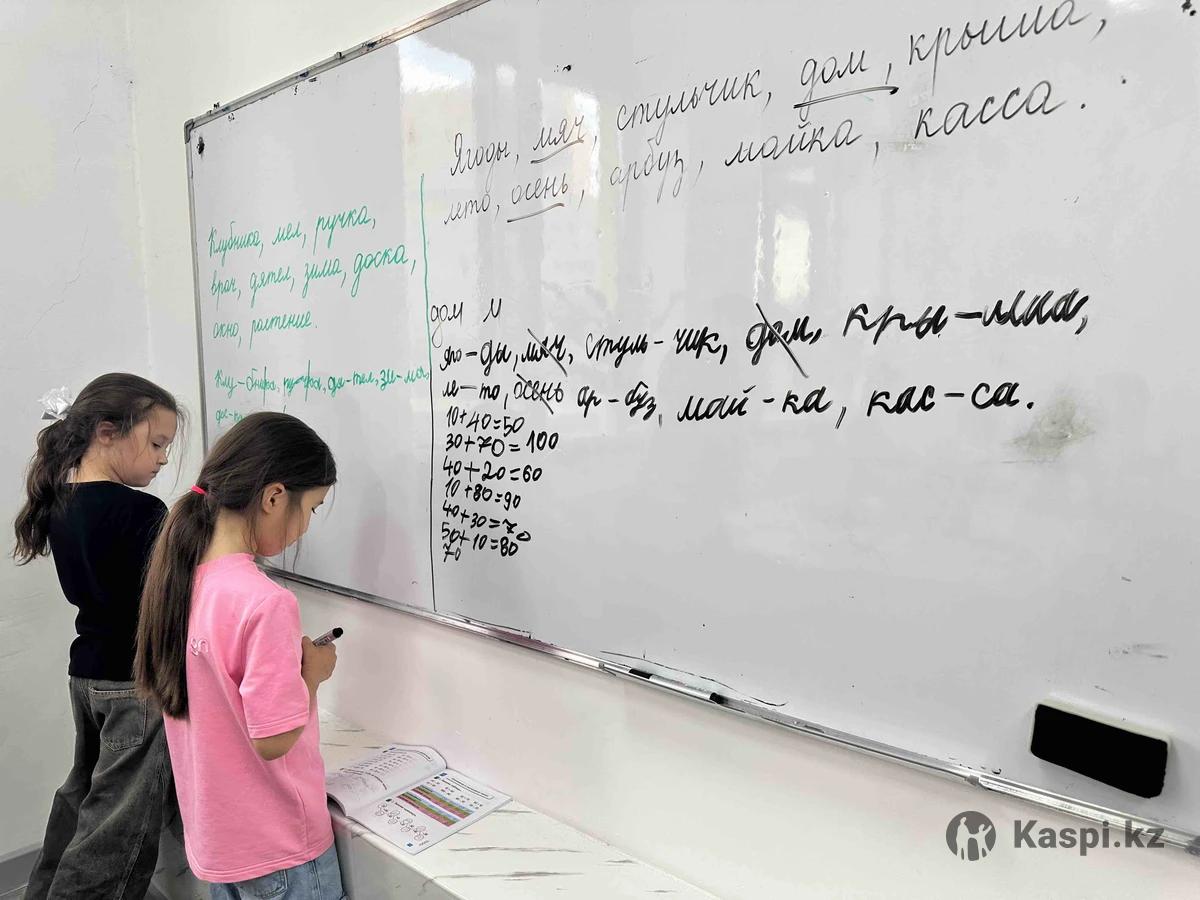 Клубника, мел, ручка,
врач, дятел, зима, доска,
окно, растение.
Клу-бника, ру-чка, дя-тел, зи-ма,
Ягоды, мяч, стульчик, дом, крыша,
лето, осень, арбуз, майка, касса.
дом м
яго-ды, мяч, стуль-чик, дом, кры-ша,
ле-то, осень ар-буз, май-ка, кас-са.
10+40=50
30+70=100
40+20=60
10+80=90
40+30=70
50+10=80
70
Kaspi.kz